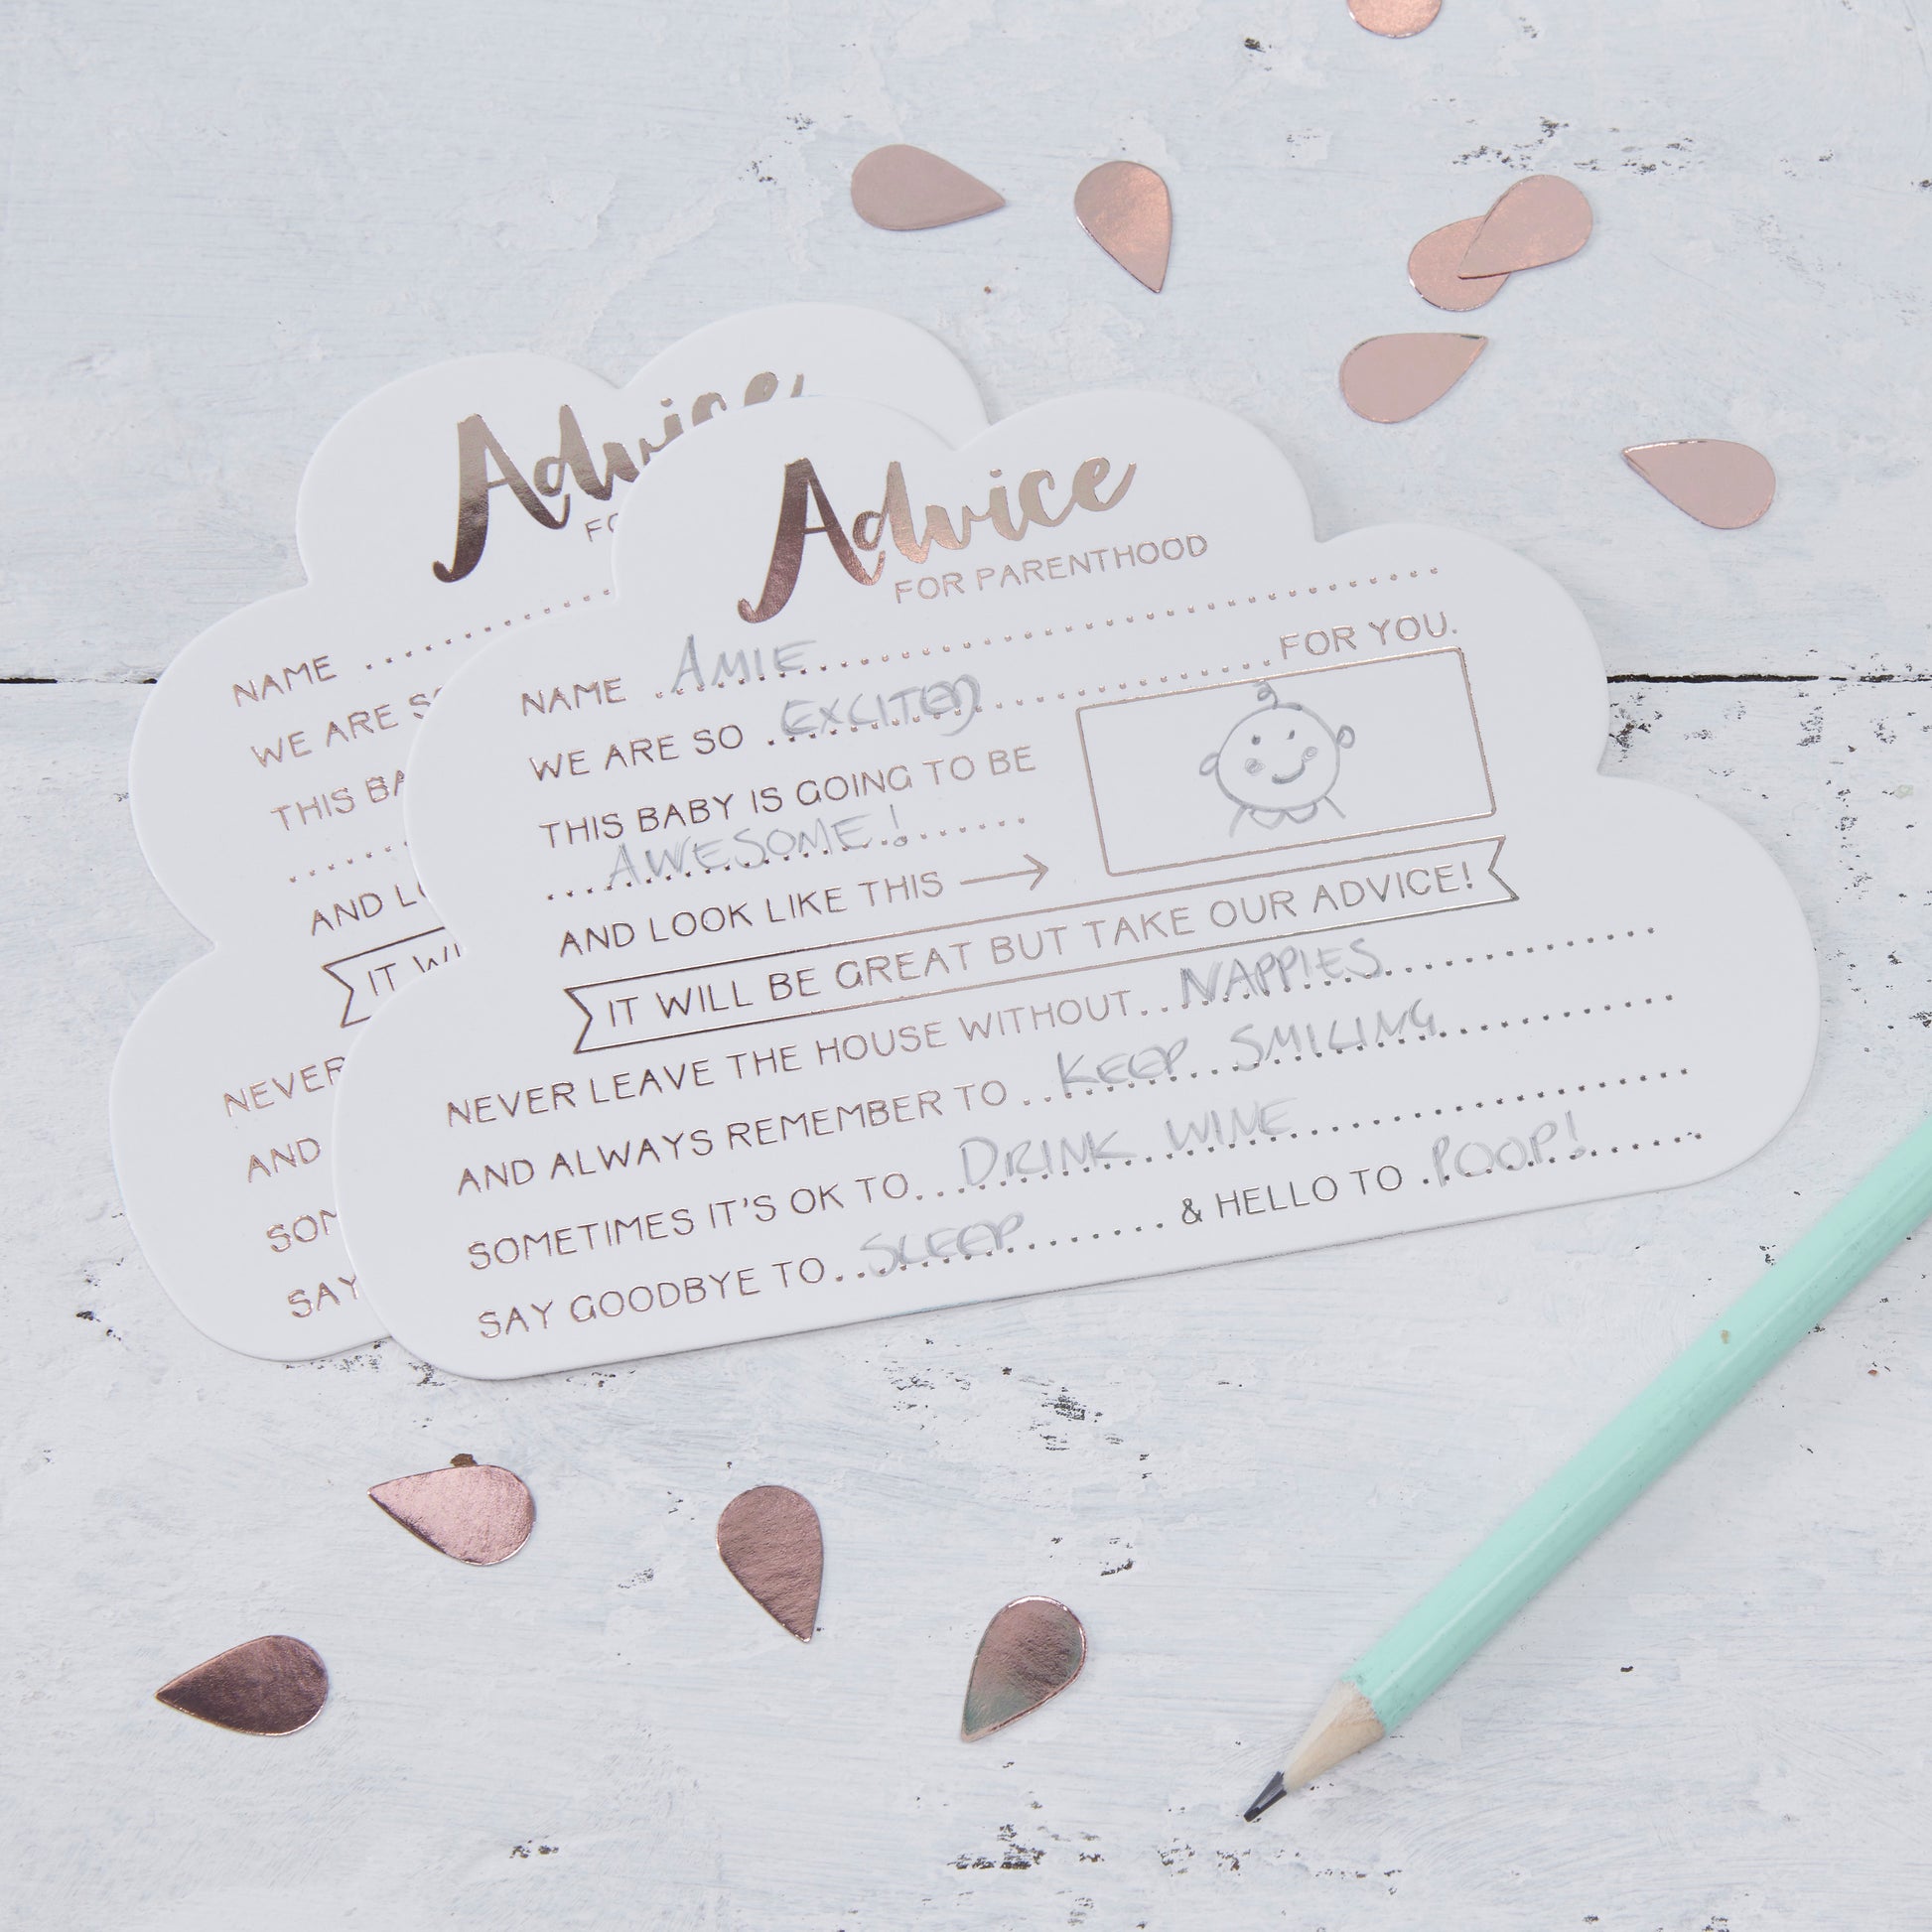 Advice
FOR PARENTHOOD
NAME AMIE
WE ARE SO EXCITED FOR YOU.
THIS BABY IS GOING TO BE
AWESOME!
AND LOOK LIKE THIS
IT WILL BE GREAT BUT TAKE OUR ADVICE!
NEVER LEAVE THE HOUSE WITHOUT NAPPIES
AND ALWAYS REMEMBER TO KEEP SMILING
SOMETIMES IT'S OK TO DRINK WINE
SAY GOODBYE TO SLEEP & HELLO TO POOP!
Advice
NAME
WE ARE
THIS
AND
IT
NEVER
AND
SAY